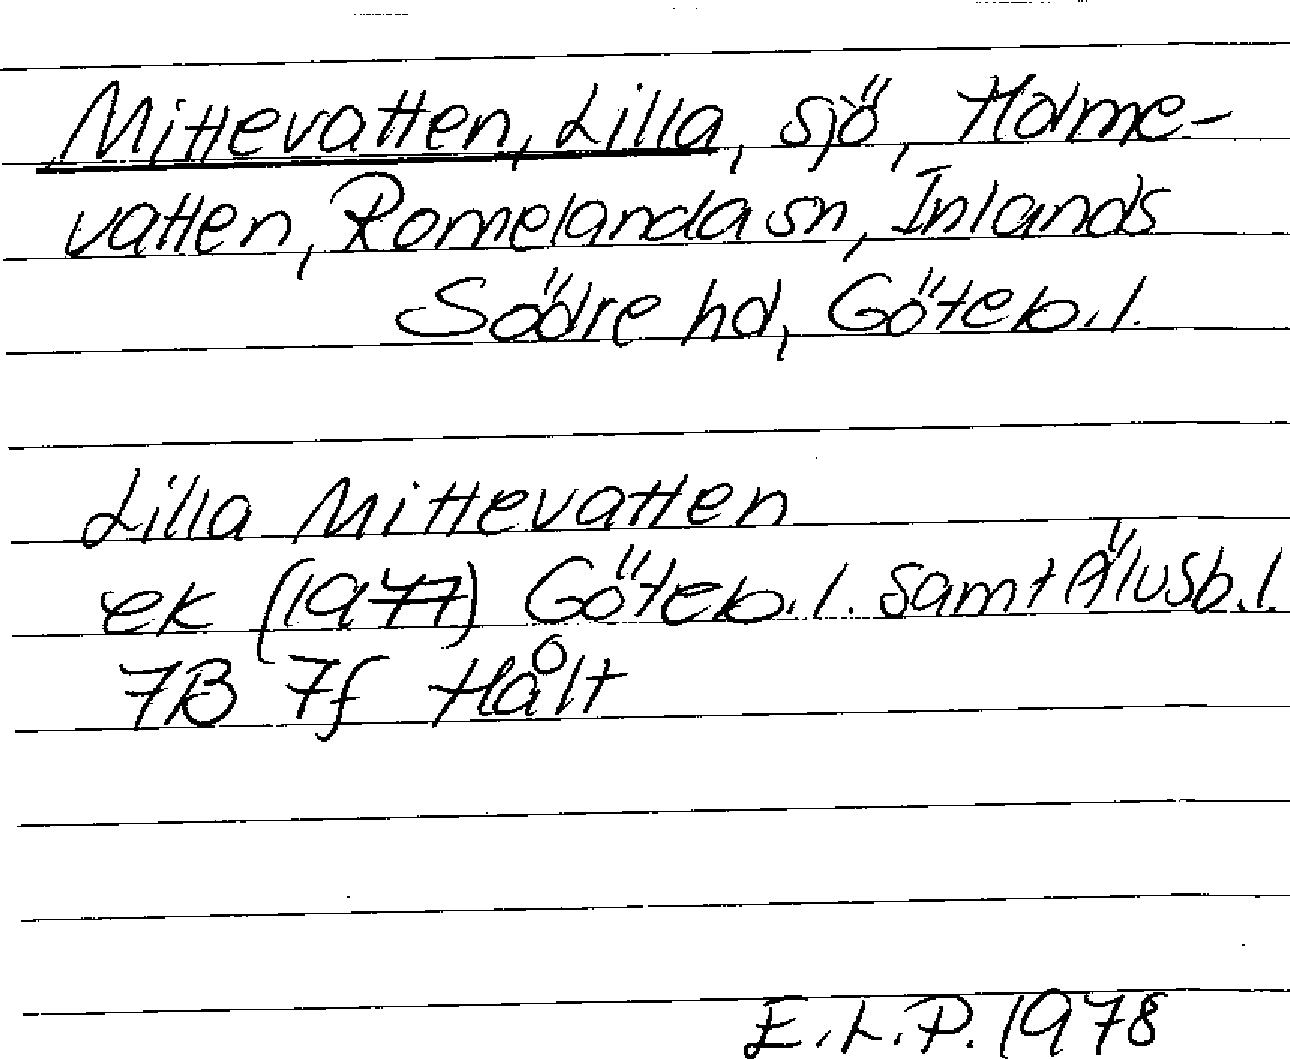 Mittevatten, Lilla, sjö, Holme-
vatten, Romelanda sn, Inlands
Södre hd, Göteb. l.
Lilla Mittevatten
ek (1977) Göteb. l. samt Älvsb. l.
7B 7f Hålt
E.L.P. 1978